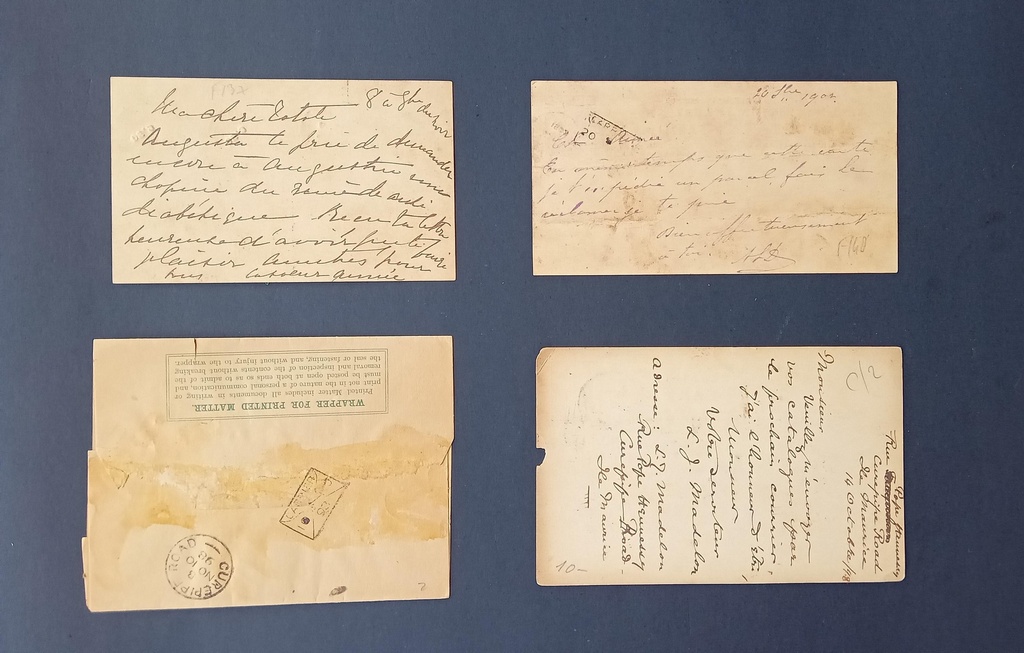 F132
8 à 9h du soir
Ma chère Totote
Augusta te prie de demander
encore à Augustin une
chopine du remède anti
diabétique. Reçu ta lettre
heureuse d'avoir pu te faire
plaisir amitiés pour
tous ta soeur Aimée
20 1902
20
Aimé
En même temps que cette carte
je t'expédie un parcel fais le
réclamer je te prie
Bien affectueusement
à toi
F140
WRAPPER FOR PRINTED MATTER.
Printed Matter includes all documents in writing or
print not in the nature of a personal communication, and
must be posted open at both ends so as to admit of the
removal and inspection of the contents without breaking
the seal or fastening, and without injury to the wrapper.
CUREPIPE ROAD
3
NO 10
98
2
C/2
Rue Pope Hennessy
Curepipe Road
Ile Maurice
14 Octobre/98
Monsieur
Veuillez m'envoyer
vos catalogues par
le prochain courrier,
J'ai l'honneur d'être,
Monsieur
Votre serviteur
L. J. Madelon
Adresse: L. J. Madelon
Rue Pope Hennessy
Curepipe Road
Ile Maurice
10-